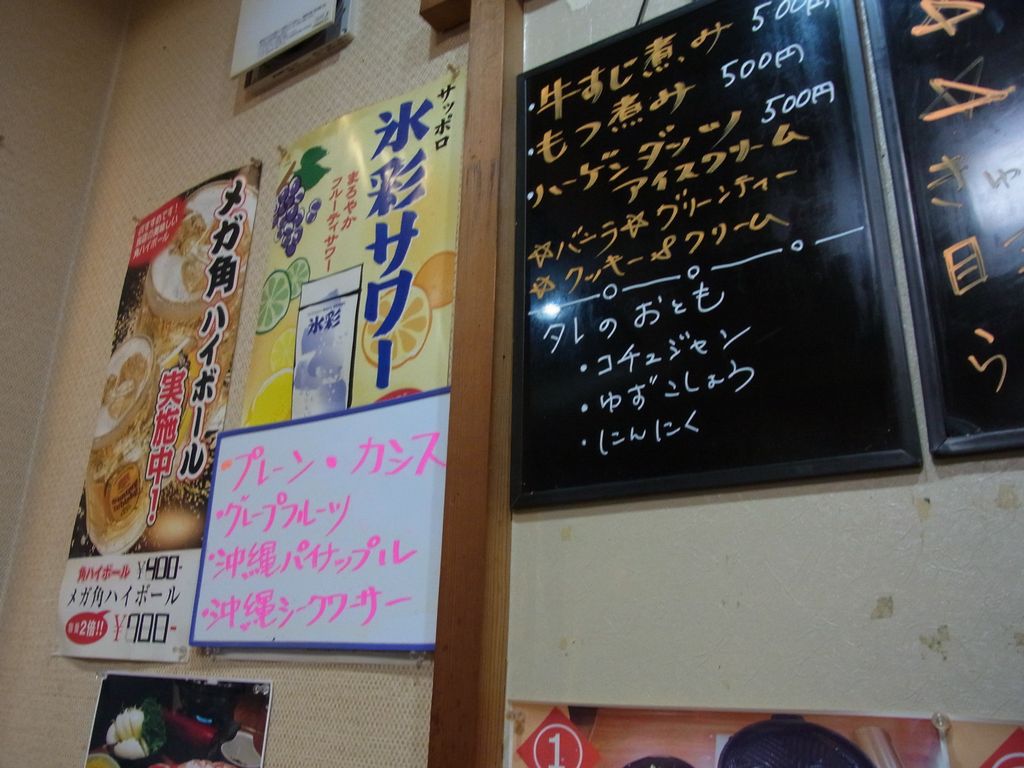 メガ角ハイボール
実施中!
角ハイボール ¥400-
メガ角ハイボール
2倍!! ¥700-
サッポロ
氷彩サワー
まろやか
フルーティサワー
氷彩
・プレーン・カシス
・グレープフルーツ
・沖縄パイナップル
・沖縄シークワーサー
・牛すじ煮み 500円
・もつ煮み 500円
・ハーゲンダッツ 500円
アイスクリーム
☆バニラ☆グリーンティー
☆クッキー&クリーム
タレのおとも
・コチュジャン
・ゆずこしょう
・にんにく
き
目
ら
1